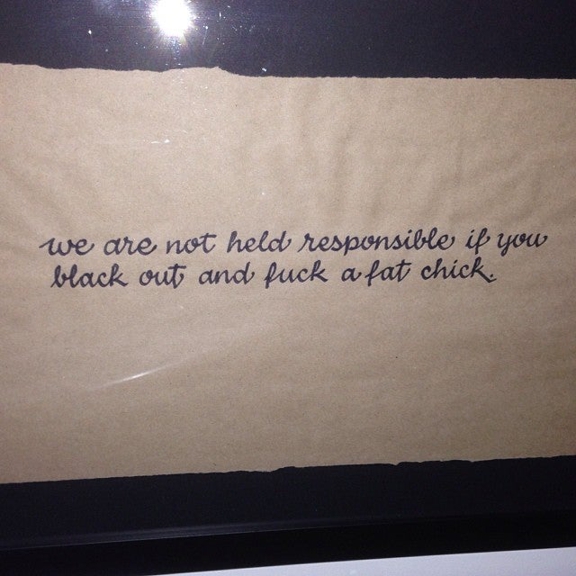 we are not held responsible if you
black out and fuck a fat chick.